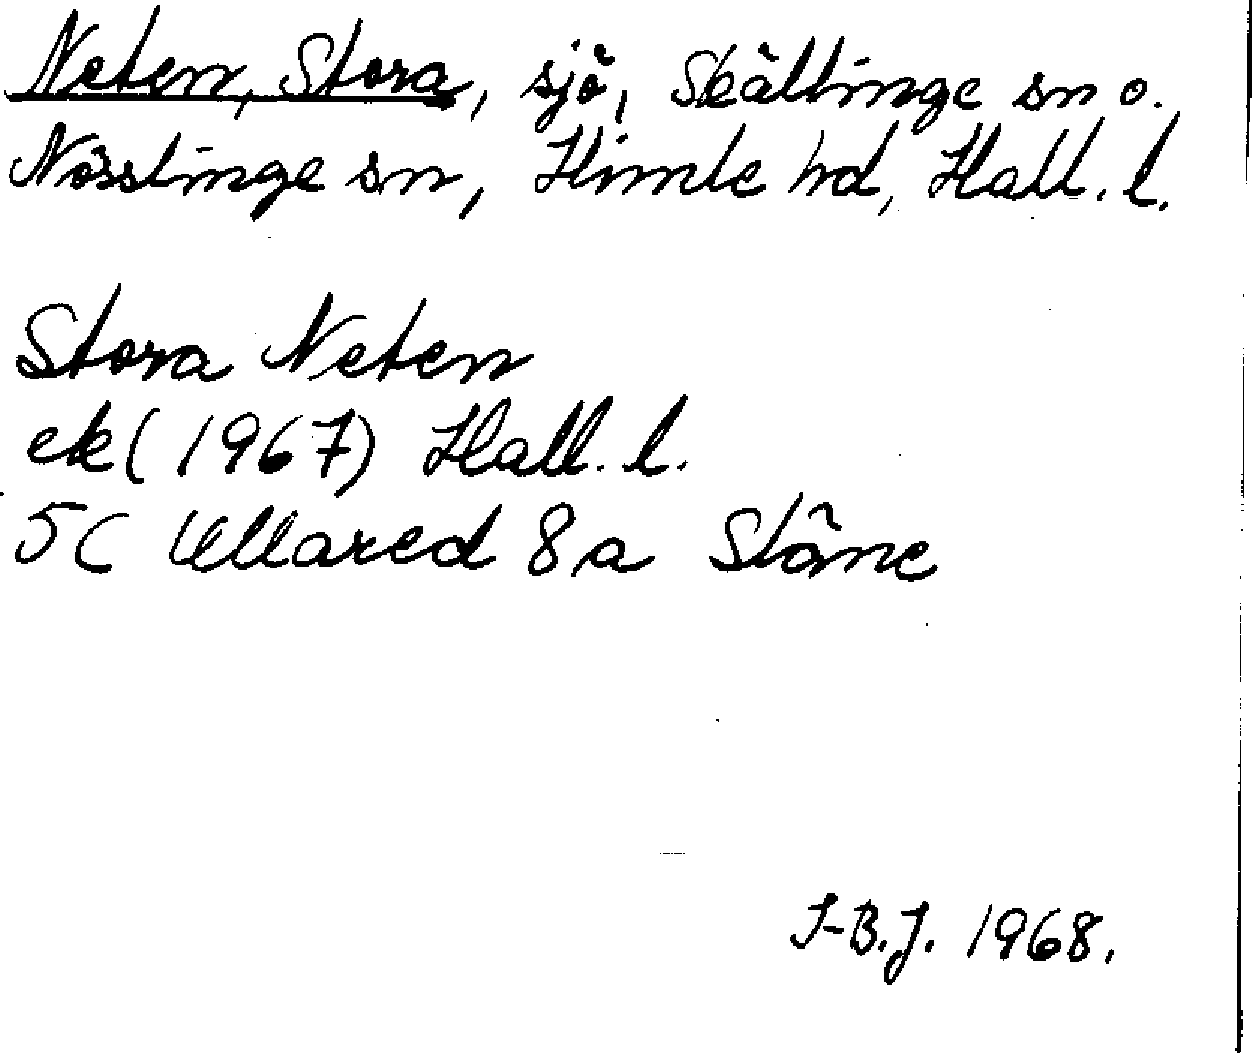 Neten, Stora, sjö, Skällinge sn o.
Nösslinge sn, Himle hd, Hall. l.
Stora Neten
ek (1967) Hall. l.
5C Ullared 8a Stöne
I-B.J. 1968.